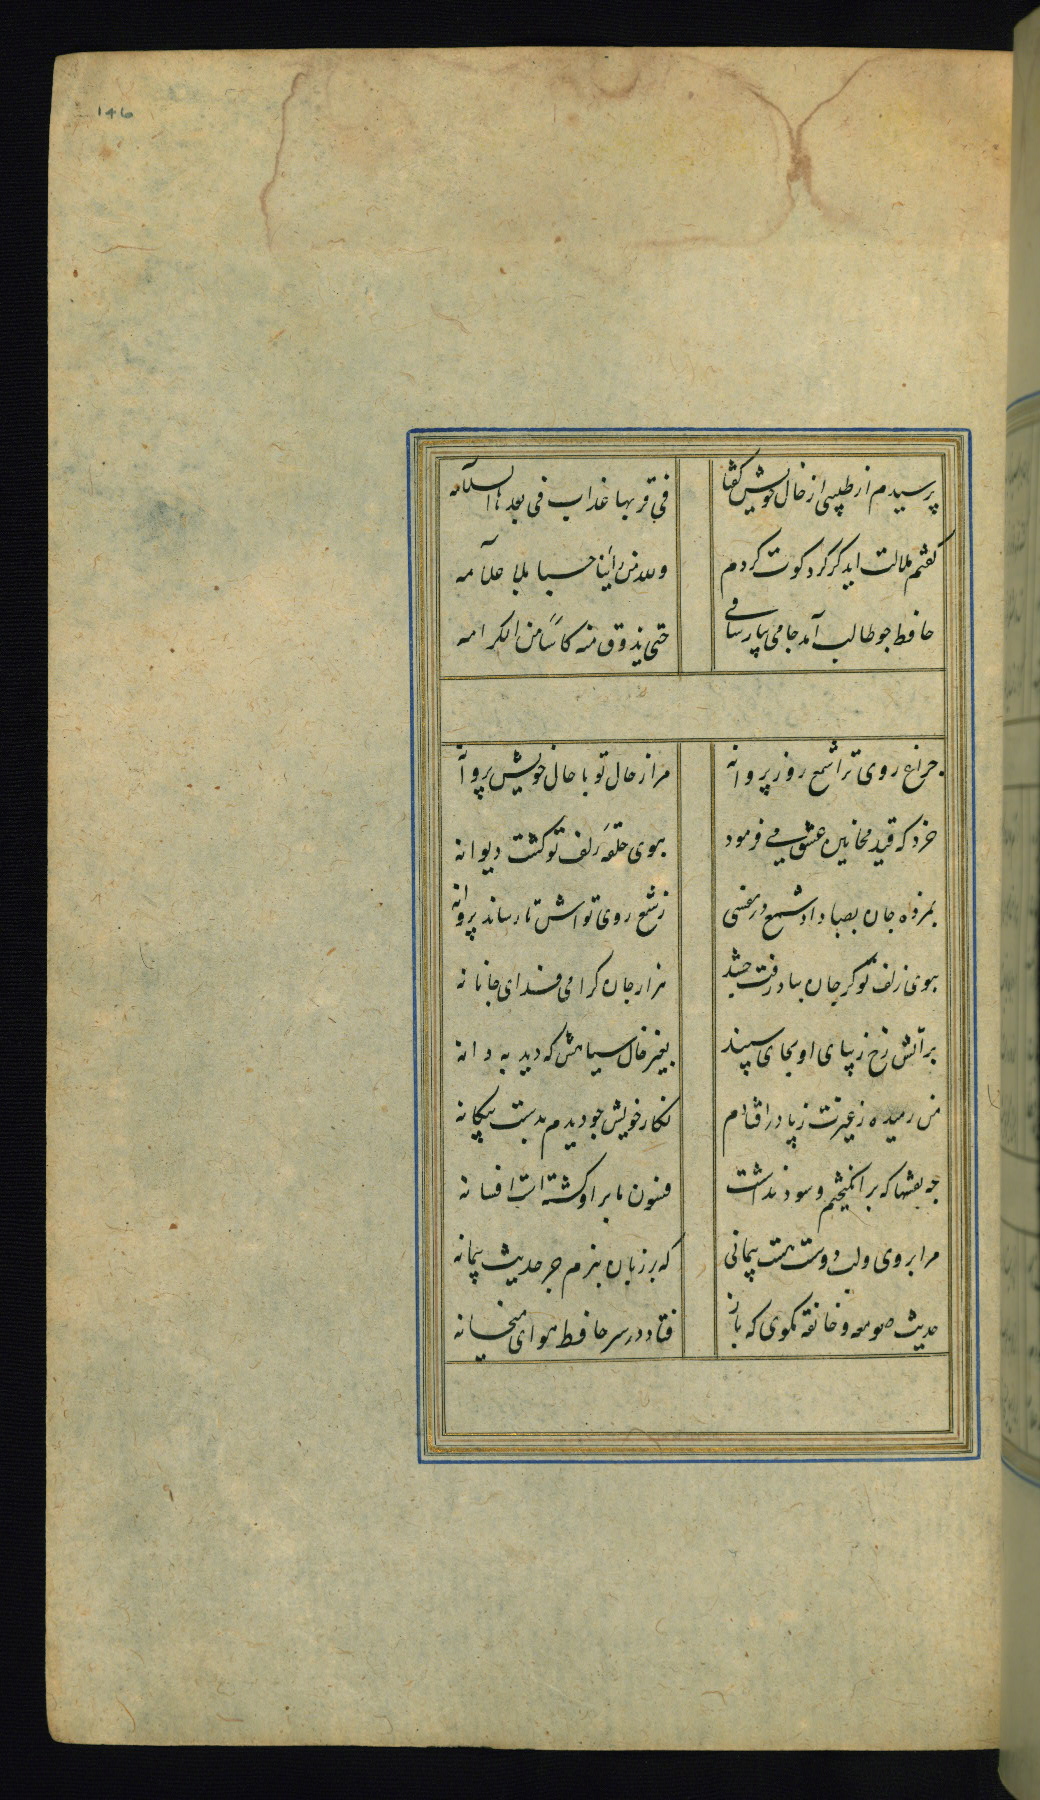 ۱۴۵
پرسیدم از طبیبی از حال خویش گفتا فی قربها عذاب فی بعدها السلامه
گفتم ملالت اید کر کرد کوت کردم والله من راینا حبا بلا ملامه
حافظ جو طالب آمد جامی بپارسائی حتی یذوق منه کاسا من الکرامه
جراغ روی ترا شمع روز پروانه مرا ز حال تو با حال خویش پروانه
خرد که قید مجانین عشق می فرمود ببوی حلقه زلف تو کشت دیوانه
بمژده جان بصبا داد شمع در نفسی ز شمع روی تو اش تا رساند پروانه
ببوی زلف تو کر جان بباد رفت جه شد هزار جان کرامی فدای جانانه
بر آتش رخ زیبای او بجای سپند بغیر خال سیاهش که دید به دانه
من رمیده ز غیرت ز پا در افتادم نکار خویش جو دیدم بدست بیکانه
جه نقشها که بر انکیختیم و سود نداشت فسون ما بر او کشته است افسانه
مرا بروی ولب دوست هست پیمانی که بر زبان نبرم جز حدیث پیمانه
حدیث صومعه و خانقه مکوی که باز فتاد در سر حافظ هوای میخانه